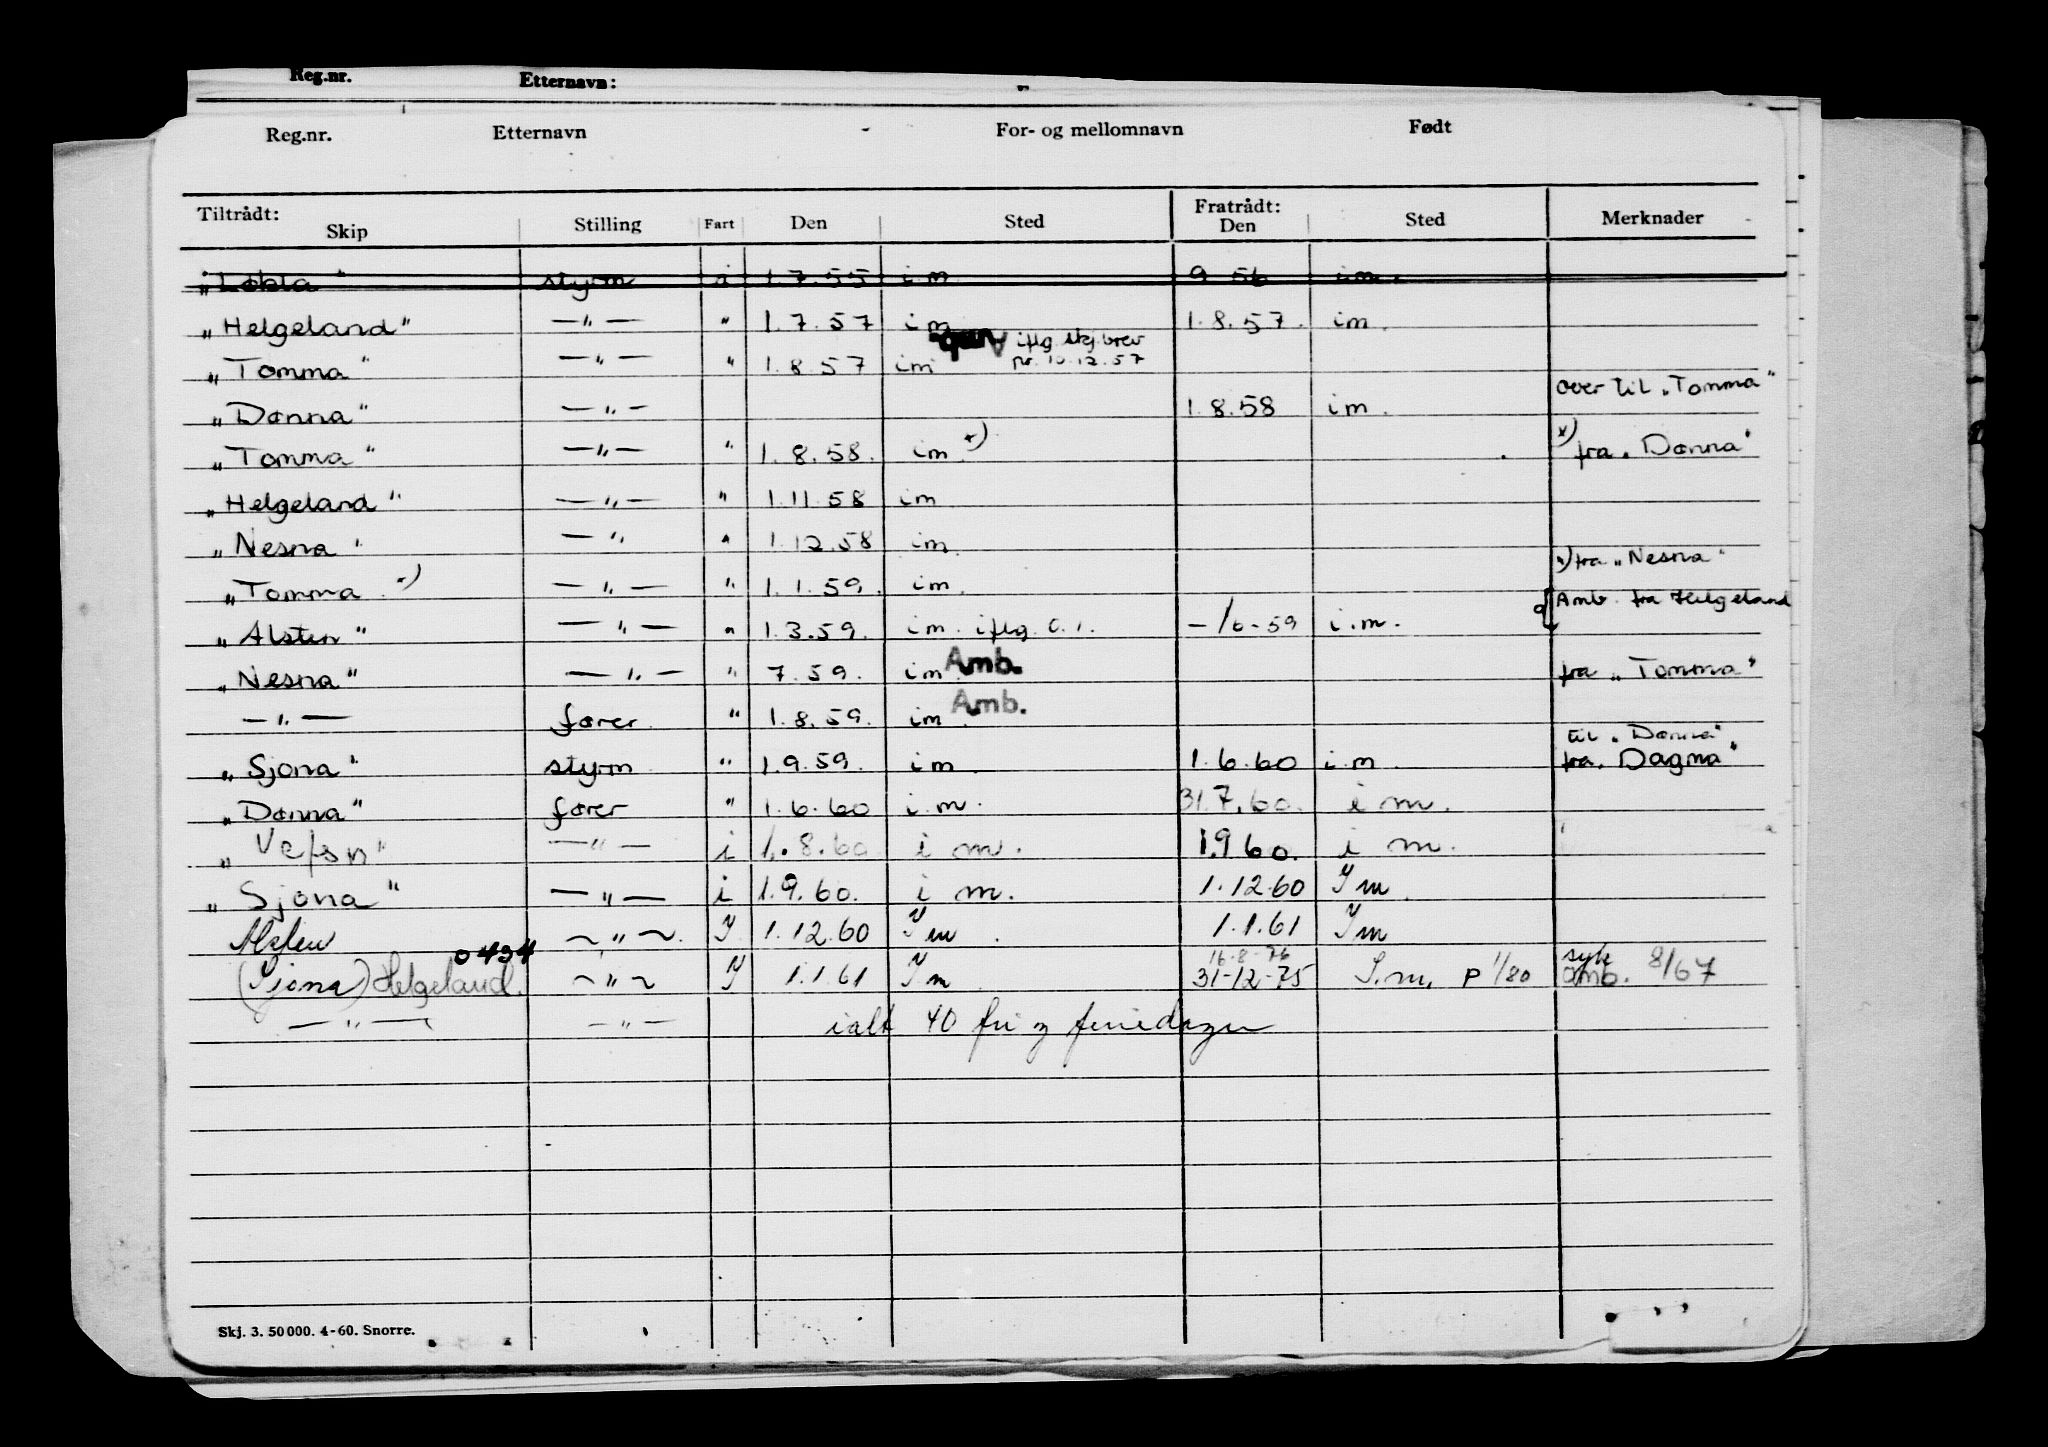 Reg.nr. Etternavn:
Reg.nr. Etternavn For- og mellomnavn Født
Tiltrådt: Skip Stilling Fart Den Sted Fratrådt: Den Sted Merknader
styrm i 1.7.55 i.m 9 56 i.m.
"Helgeland" —"— " 1.7.57 i m 1.8.57. i m.
iflg. skj.brev
"Tomma" —"— " 1.8.57 i m nr. 10.12.57
over til "Tomma"
"Dønna" —"— 1.8.58 i m.
"Tomma" —"— " 1.8.58. i m. x) x) fra "Dønna"
"Helgeland" —"— " 1.11.58 i m
"Nesna" —" " 1.12.58 i m.
x) fra "Nesna"
"Tomma x) —"— " 1.1.59. i m.
Amb. fra Helgeland
"Alsten" —"— " 1.3.59. i m. iflg. o.i. –/6-59 i.m.
"Nesna" —"— " 7.59. i m Amb. fra "Tomma"
—"— fører " 1.8.59. i m. Amb.
til "Dønna"
"Sjona" styrm " 1.9.59. i m 1.6.60 i m fra "Dagma"
"Dønna" fører " 1.6.60 i.m. 31.7.60. i m.
"Vefsn" —"— i 1.8.60 i m. 1.9.60. i m.
"Sjona" —"— i 1.9.60. i m. 1.12.60 I m.
Alsten ~"~ I 1.12.60 I m. 1.1.61 I m
0434 16-8-76 syk
(Sjona) Helgeland. ~"~ I 1.1.61 I m. 31-12-75 I.m. P 1/80 amb. 8/67
—"— —"— ialt 40 fri og feriedager
Skj. 3. 50 000. 4-60. Snorre.